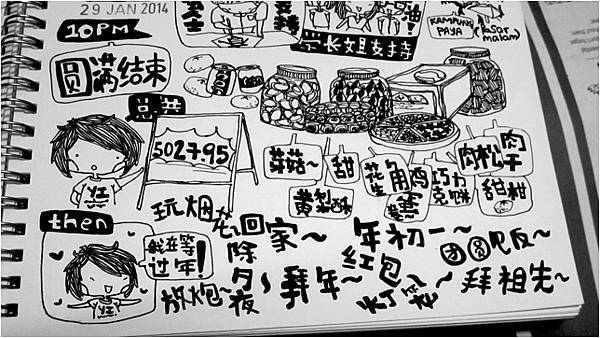 29 JAN 2014
10PM
支持
油!
学长姐支持
KAMPUNG PAYA
(Pasar malam)
圆满结束
总共
5027.95
芽菇~
甜
花生
角
鸡
巧克力饼
肉松
肉干
黄梨酥
甜柑
then
我在等
过年!
玩烟花
回家~
年初一~
团圆饭~
放炮~
除夕夜~
拜年~
红包~
拜祖先~